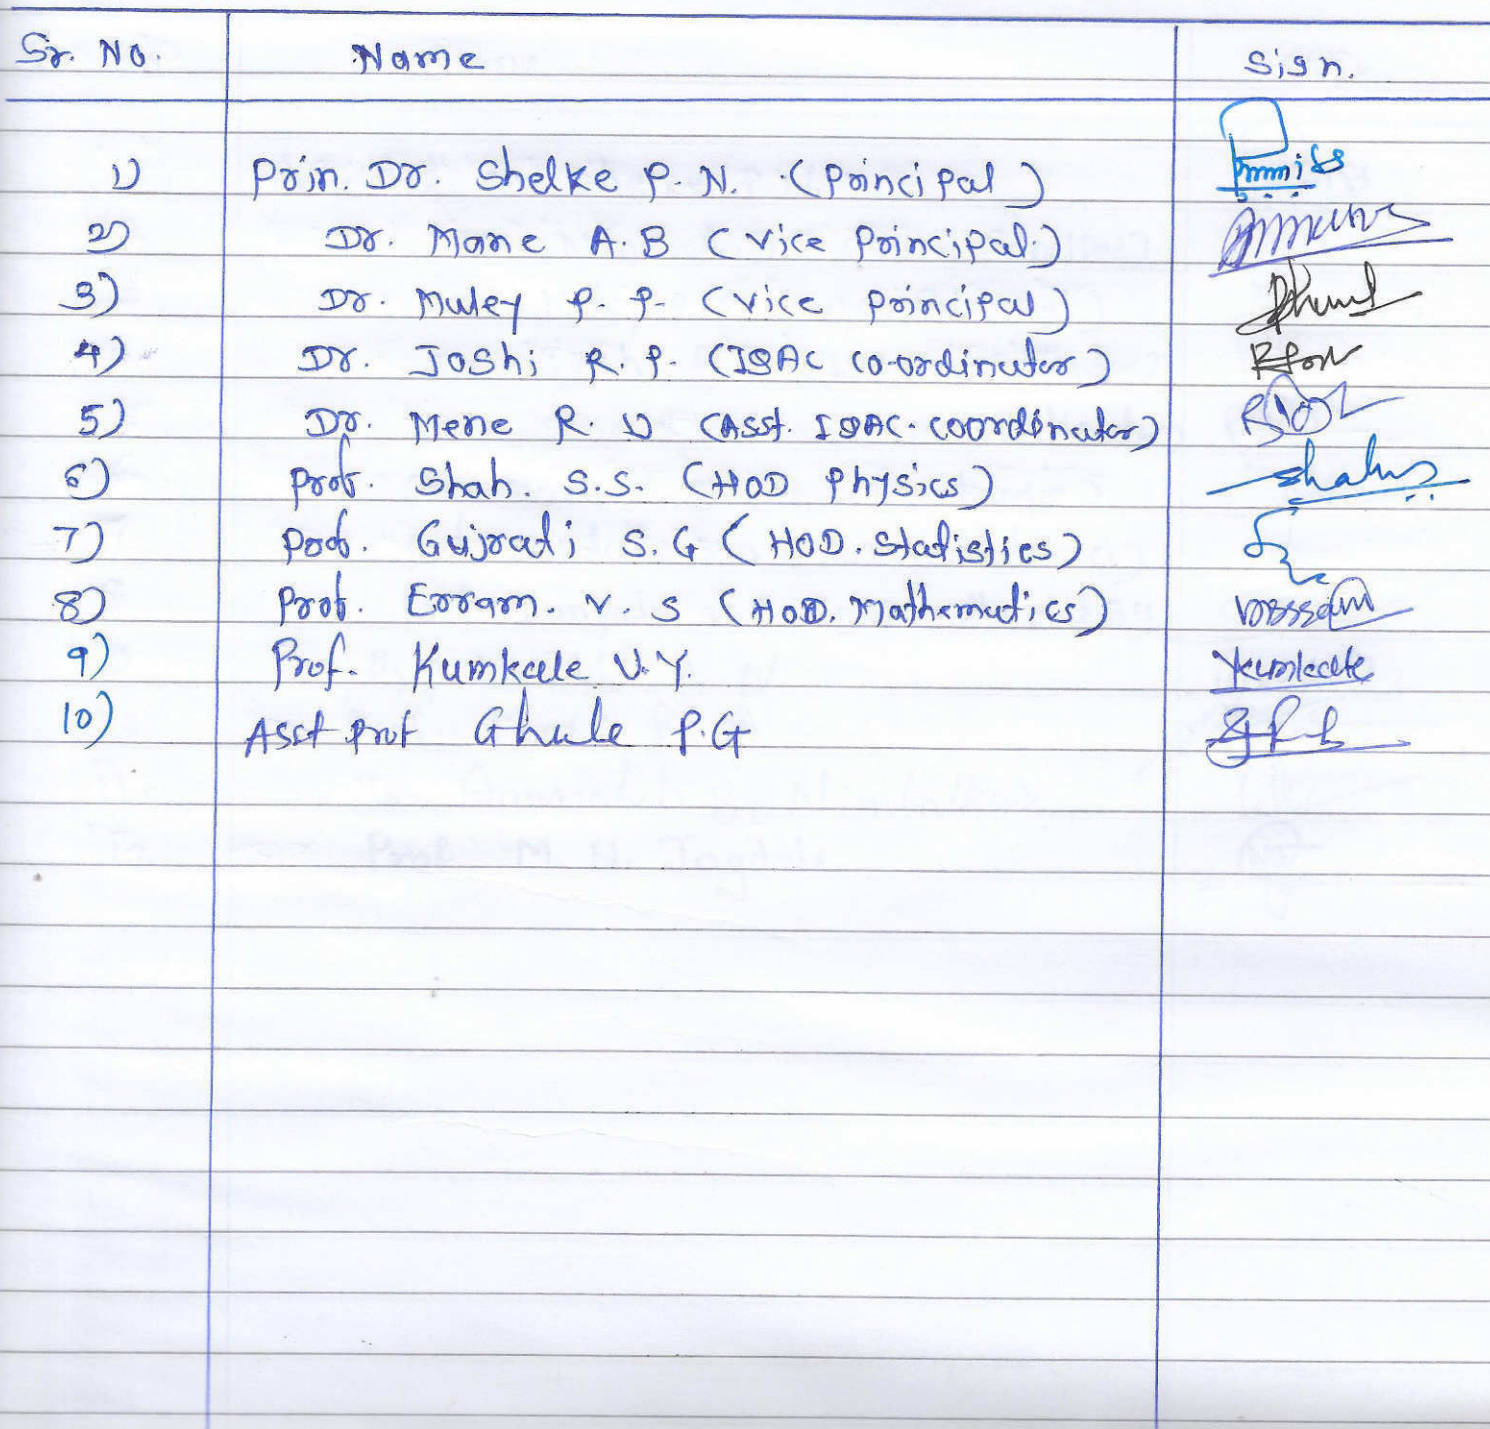 Sr. No. Name Sign.
1) Prin. Dr. Shelke P. N. (Principal)
2) Dr. Mane A. B (Vice Principal)
3) Dr. Muley P. P. (Vice Principal)
4) Dr. Joshi R. P. (IQAC co-ordinator)
5) Dr. Mene R. U (Asst. IQAC. coordinator)
6) Prof. Shah. S.S. (HOD Physics)
7) Prof. Gujrati S. G (HOD. Statistics)
8) Prof. Erram. V. S (HOD. Mathematics)
9) Prof. Kumkale V. Y. Kumkale
10) Asst prof Ghule P.G